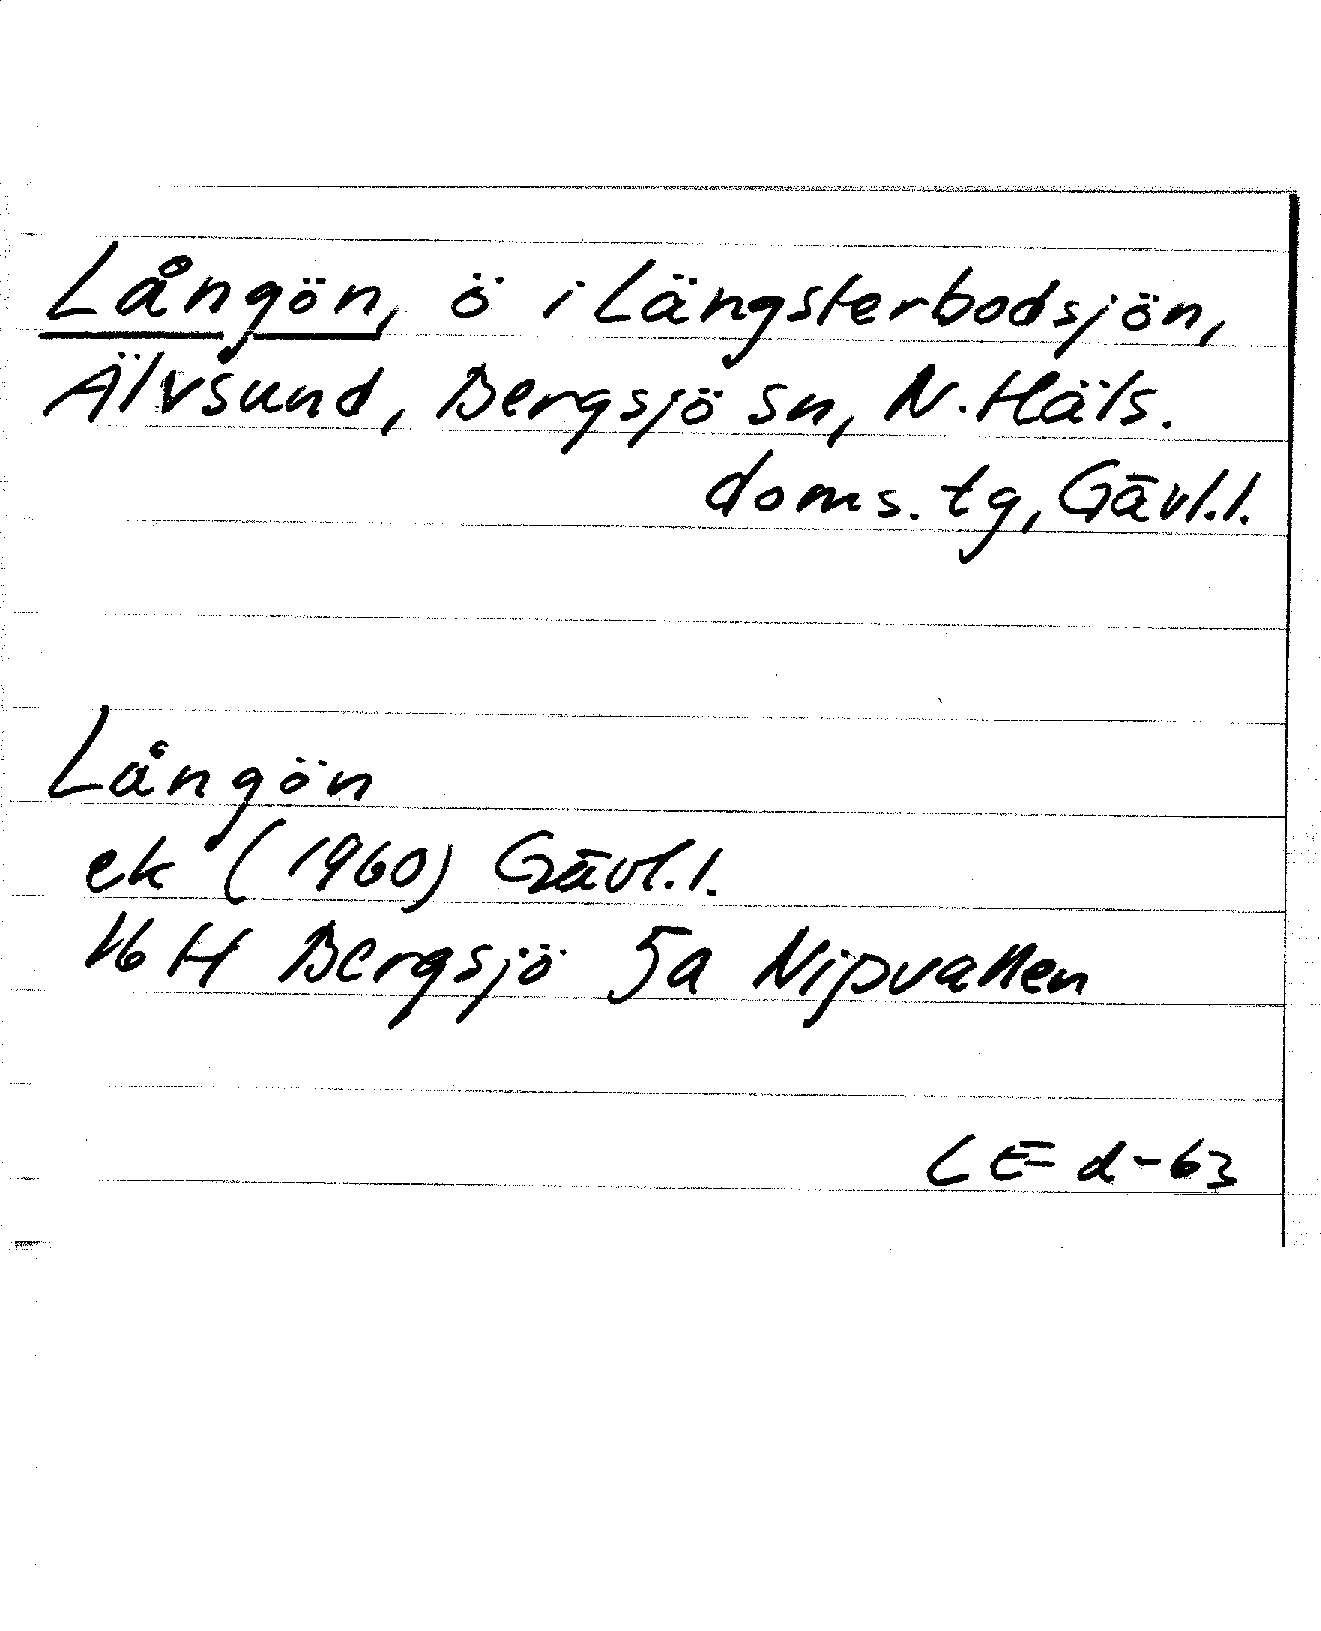 Långön, ö i Längsterbodsjön,
Älvsund, Bergsjö sn, N. Häls.
doms. tg, Gävl.l.
Långön
ek (1960) Gävl.l.
16 H Bergsjö 5a Nipvallen
LE d-63